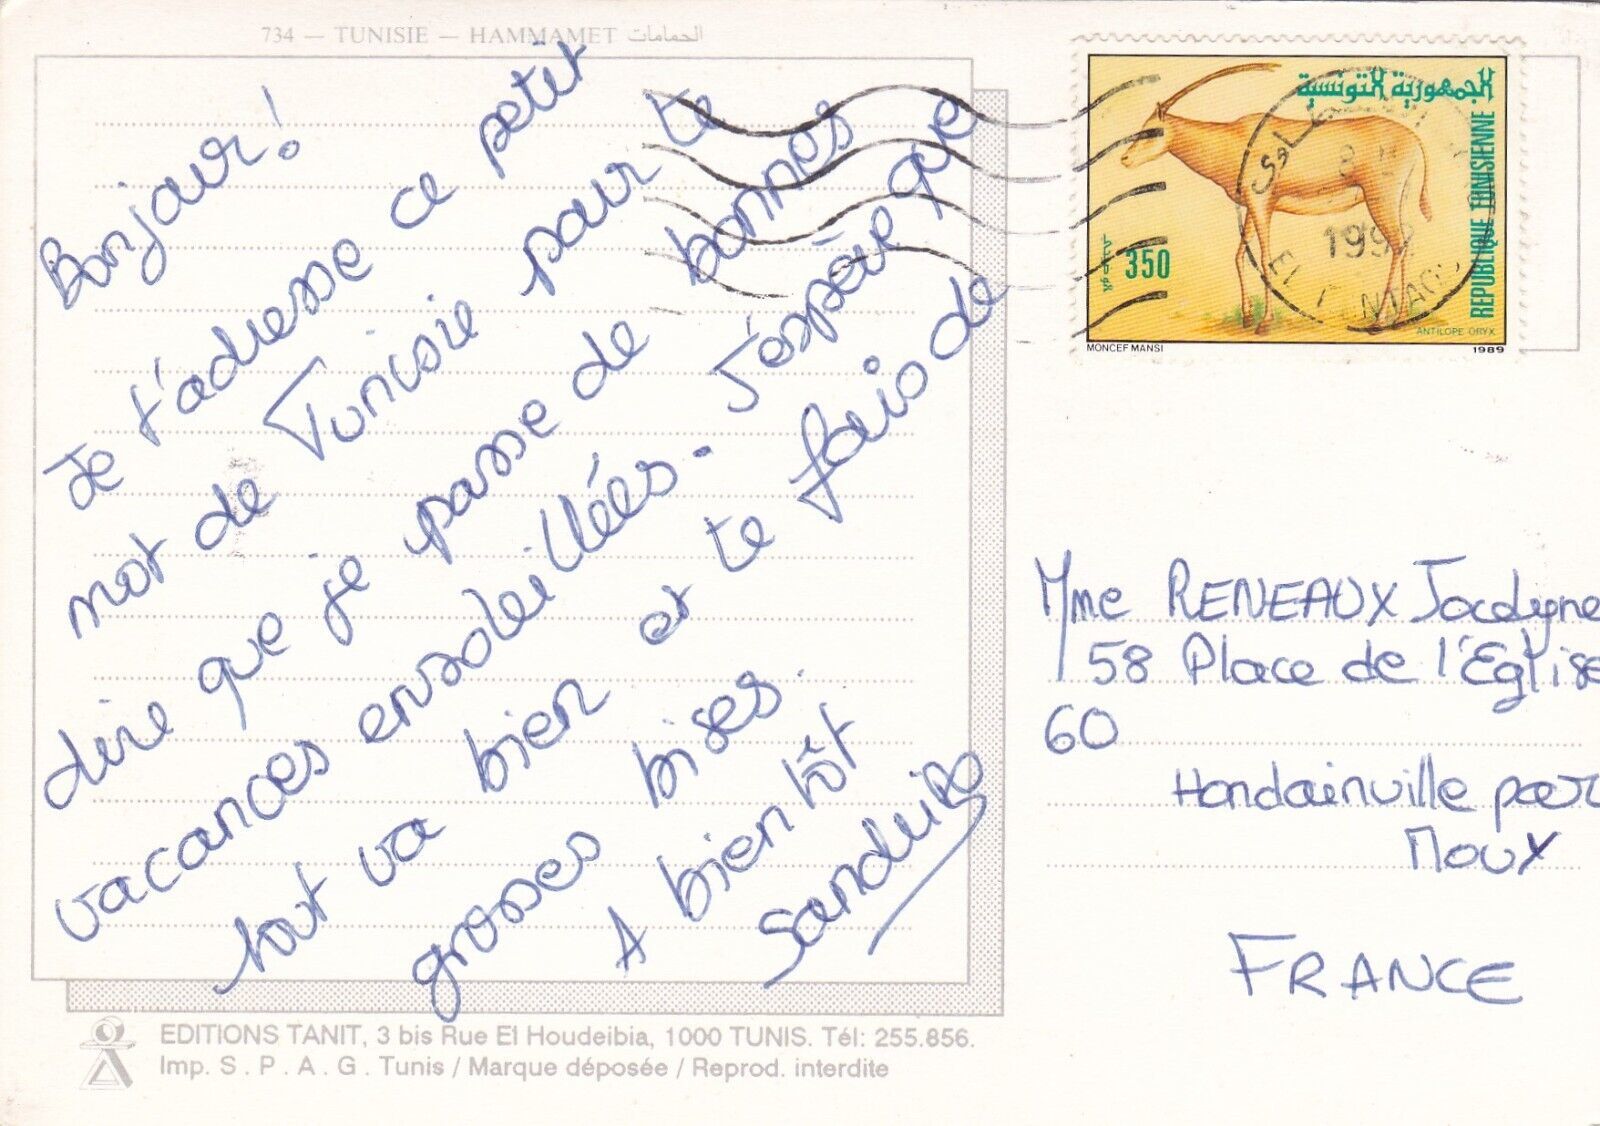 734 — TUNISIE — HAMMAMET الحمامات
Bonjour!
Je t'adresse ce petit
mot de Tunisie pour te
dire que je passe de bonnes
vacances ensoleillées. J'espère que
tout va bien et te fais de
grosses bises.
A bientôt
EDITIONS TANIT, 3 bis Rue El Houdeibia, 1000 TUNIS. Tél: 255.856.
Imp. S.P.A.G. Tunis / Marque déposée / Reprod. interdite
الجمهورية التونسية
REPUBLIQUE TUNISIENNE
350
ANTILOPE ORYX
MONCEF MANSI 1989
Mme RENEAUX
58 Place de l'Eglise
60
Hondainville par
Moux
FRANCE